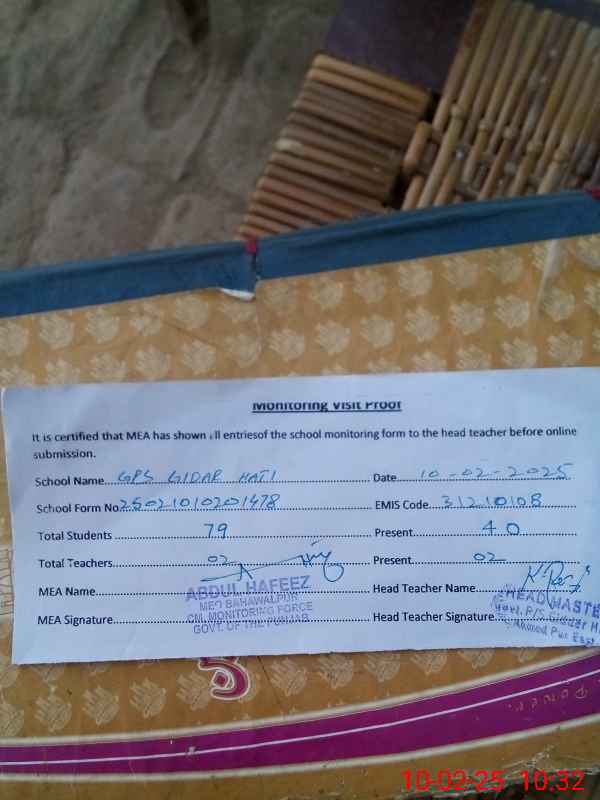 Monitoring Visit Proof
It is certified that MEA has shown all entriesof the school monitoring form to the head teacher before online
submission.
School Name GPS GIDAR HATI Date 10-02-2025
School Form No 25021010201478 EMIS Code 31210108
Total Students 79 Present 40
Total Teachers 02 Present 02
MEA Name Head Teacher Name
ABDUL HAFEEZ
MEO BAHAWALPUR
CM, MONITORING FORCE
GOVT. OF THE PUNJAB
HEAD MASTE
Govt. P/S Gidder H
Ahmed Pur East
MEA Signature Head Teacher Signature
10-02-25 10:32